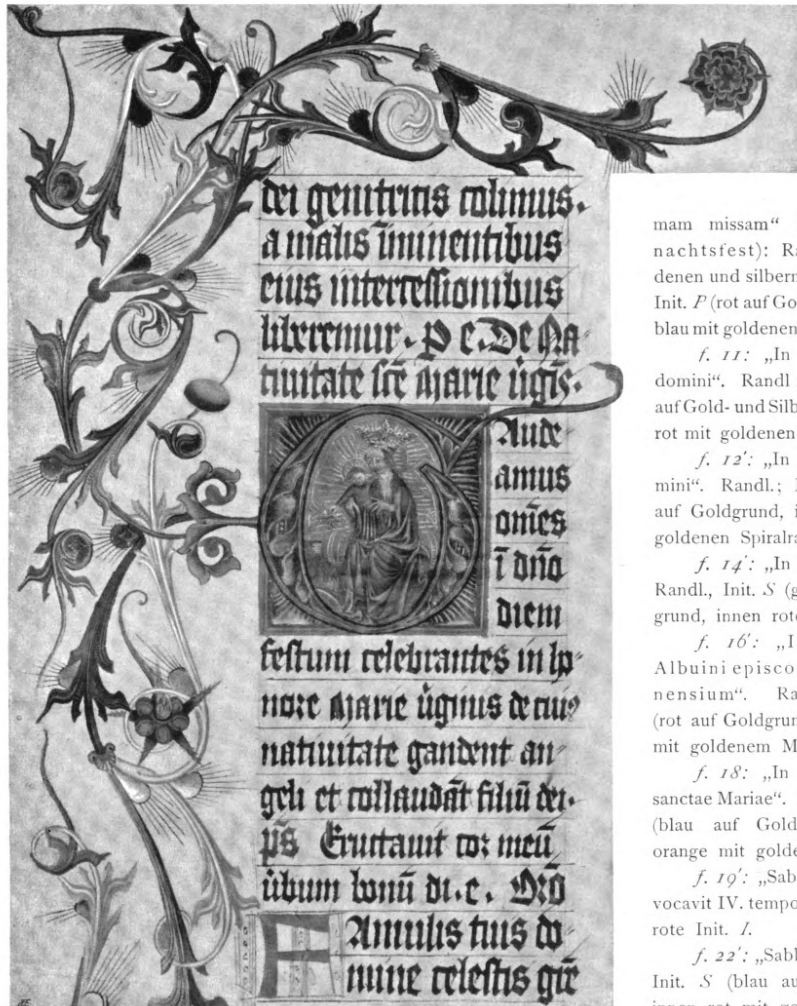 dei genitricis colimus.
a malis īminentibus
eius intercessionibus
liberemur. P e. De Na
tiuitate sce marie ūgis.
Aude
amus
om̄es
ī dn̄o
diem
festum celebrantes in ho
nore marie ūginis de cuiꝰ
natiuitate gaudent an
geli et collaudāt filiū dei.
p̄s Eructauit cor meū
ūbum bonū di. c. Oro
Famulis tuis do
mine celestis gr̄e
mam missam“
nachtsfest): Ra
denen und silbern
Init. P (rot auf Go
blau mit goldenen
f. 11: „In
domini“. Randl
auf Gold- und Silb
rot mit goldenen
f. 12′: „In
mini“. Randl.;
auf Goldgrund, i
goldenen Spiralra
f. 14′: „In
Randl., Init. S (g
grund, innen rote
f. 16′: „I
Albuini episco
nensium“. Ra
(rot auf Goldgrun
mit goldenem M
f. 18: „In
sanctae Mariae“.
(blau auf Gold
orange mit golde
f. 19′: „Sab
vocavit IV. tempo
rote Init. I.
f. 22′: „Sabl
Init. S (blau au